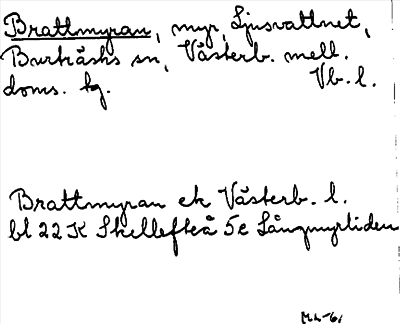 Brattmyran, myr, Ljusvattnet,
Burträsks sn, Västerb. mell.
doms. tg. Vb. l.
Brattmyran ek Västerb. l.
bl 22 K Skellefteå 5c Långmyrliden